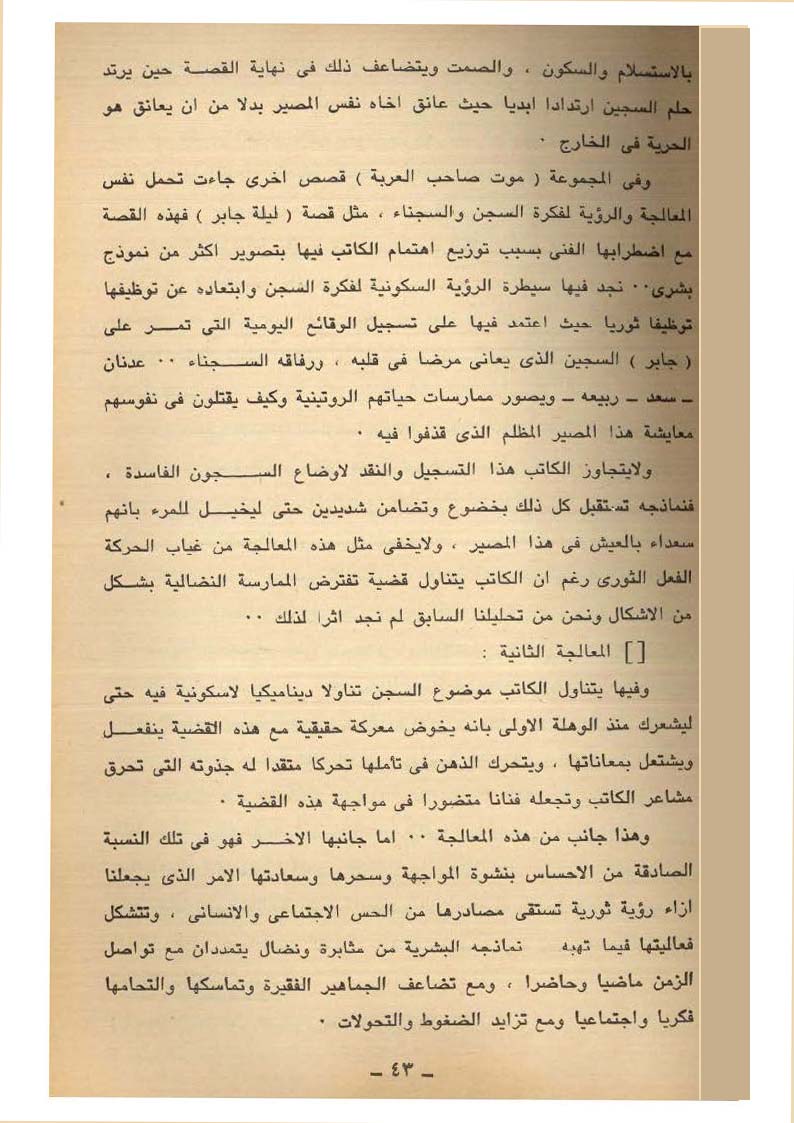 بالاستسلام والسكون ، والصمت ويتضاعف ذلك فى نهاية القصة حين يرتد
حلم السجين ارتدادا ابديا حيث عانق اخاه نفس المصير بدلا من ان يعانق هو
الحرية فى الخارج ٠
وفى المجموعة ( موت صاحب العربة ) قصص اخرى جاءت تحمل نفس
المعالجة والرؤية لفكرة السجن والسجناء ، مثل قصة ( ليلة جابر ) فهذه القصة
مع اضطرابها الفنى بسبب توزيع اهتمام الكاتب فيها بتصوير اكثر من نموذج
بشرى ٠٠ نجد فيها سيطرة الرؤية السكونية لفكرة السجن وابتعاده عن توظيفها
توظيفا ثوريا حيث اعتمد فيها على تسجيل الوقائع اليومية التى تمر على
( جابر ) السجين الذى يعانى مرضا فى قلبه ، ورفاقه السجناء ٠٠ عدنان
ـ سعد ـ ربيعه ـ ويصور ممارسات حياتهم الروتينية وكيف يقتلون فى نفوسهم
معايشة هذا المصير المظلم الذى قذفوا فيه ٠
ولايتجاوز الكاتب هذا التسجيل والنقد لاوضاع السجون الفاسدة ،
فنماذجه تستقبل كل ذلك بخضوع وتضامن شديدين حتى ليخيل للمرء بانهم
سعداء بالعيش فى هذا المصير ، ولايخفى مثل هذه المعالجة من غياب الحركة
الفعل الثورى رغم ان الكاتب يتناول قضية تفترض الممارسة النضالية بشكل
من الاشكال ونحن من تحليلنا السابق لم نجد اثرا لذلك ٠٠
[] المعالجة الثانية :
وفيها يتناول الكاتب موضوع السجن تناولا ديناميكيا لاسكونية فيه حتى
ليشعرك منذ الوهلة الاولى بانه يخوض معركة حقيقية مع هذه القضية ينفعل
ويشتعل بمعاناتها ، ويتحرك الذهن فى تأملها تحركا متقدا له جذوته التى تحرق
مشاعر الكاتب وتجعله فنانا متضورا فى مواجهة هذه القضية ٠
وهذا جانب من هذه المعالجة ٠٠ اما جانبها الاخر فهو فى تلك النسبة
الصادقة من الاحساس بنشوة المواجهة وسحرها وسعادتها الامر الذى يجعلنا
ازاء رؤية ثورية تستقى مصادرها من الحس الاجتماعى والانسانى ، وتتشكل
فعاليتها فيما تهبه نماذجه البشرية من مثابرة ونضال يتمددان مع تواصل
الزمن ماضيا وحاضرا ، ومع تضاعف الجماهير الفقيرة وتماسكها والتحامها
فكريا واجتماعيا ومع تزايد الضغوط والتحولات ٠
ـ ٤٣ ـ